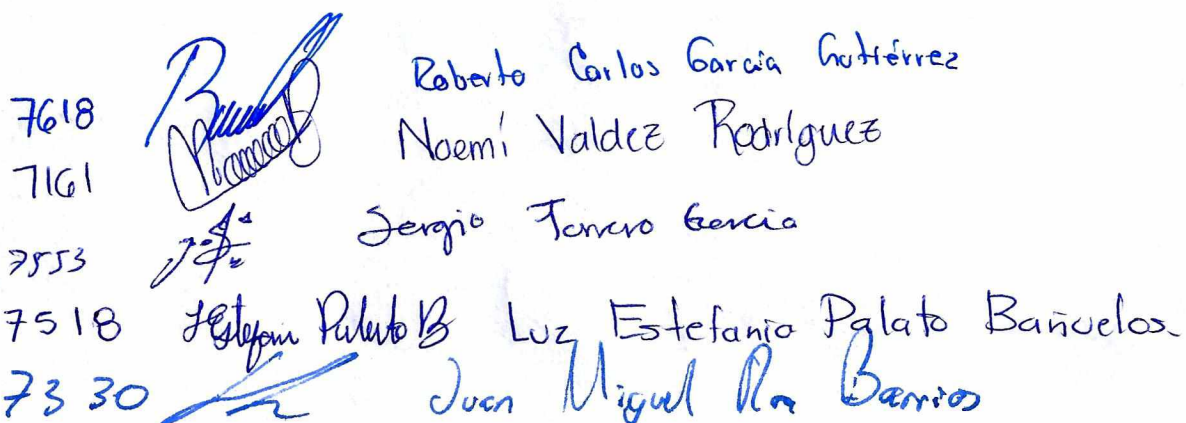 7618 Roberto Carlos García Gutiérrez
7161 Noemí Valdez Rodríguez
7553 Sergio García
7518 Estefani Palato B Luz Estefania Palato Bañuelos
7330 Juan Miguel Barrios